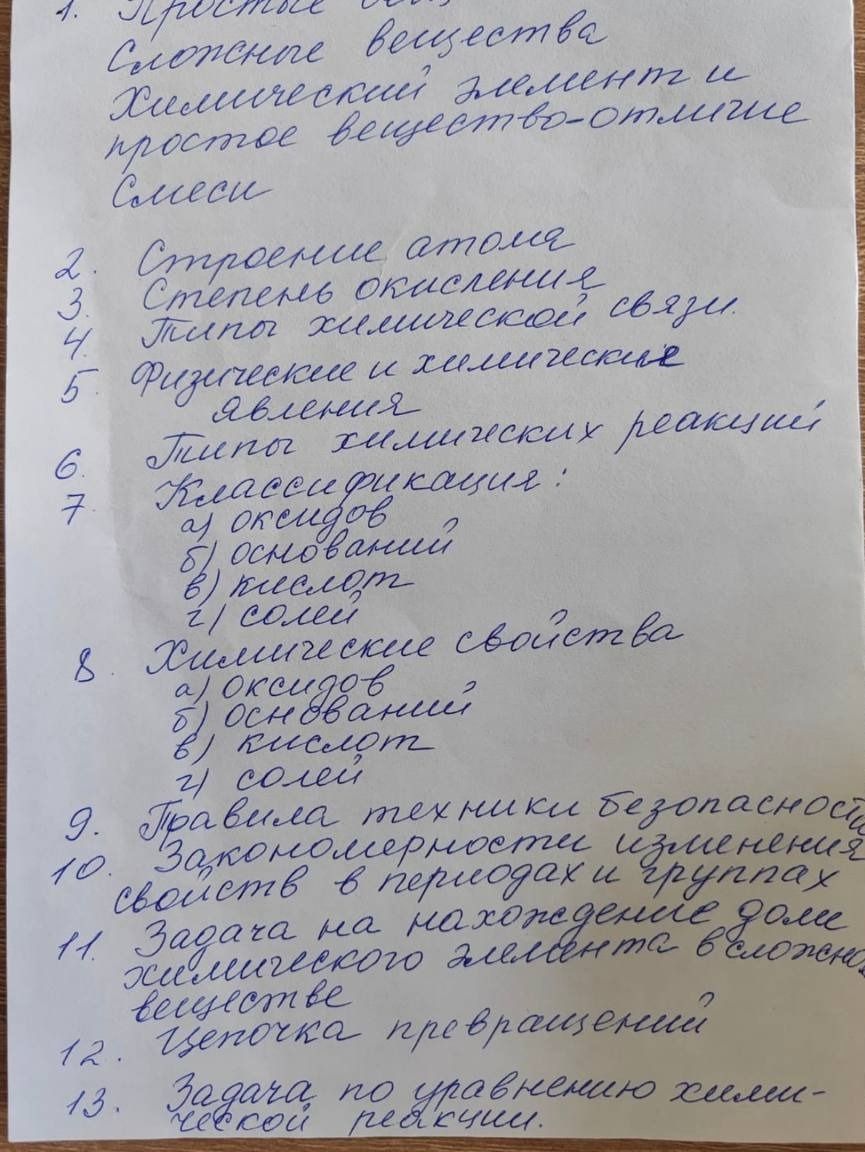 1. Простые
Сложные вещества
Химический элемент и
простое вещество-отличие
Смеси
2. Строение атома
3. Степень окисления
4. Типы химической связи.
5. Физические и химические
явления
6. Типы химических реакций
7. Классификация:
а) оксидов
б) оснований
в) кислот
г) солей
8. Химические свойства
а) оксидов
б) оснований
в) кислот
г) солей
9. Правила техники безопасности
10. Закономерности изменения
свойств в периодах и группах
11. Задача на нахождение доли
химического элемента в сложно
веществе
12. Цепочка превращений
13. Задача по уравнению хими-
ческой реакции.